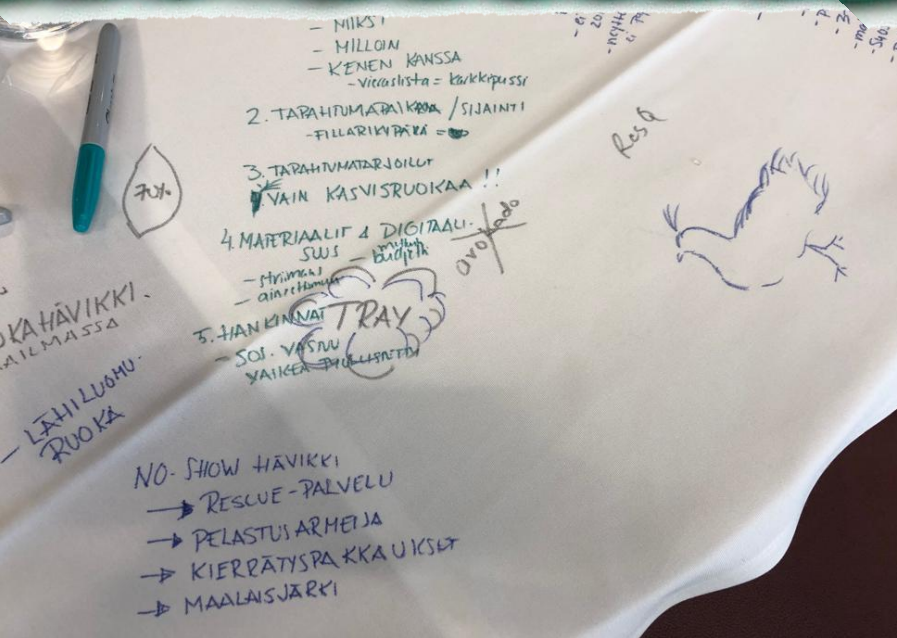 - MIKSI
- MILLOIN
- KENEN KANSSA
- vieraslista = karkkipussi
2. TAPAHTUMAPAIKKA / SIJAINTI
- FILLARIKYPÄRÄ =
3. TAPAHTUMATARJOILUT
VAIN KASVISRUOKAA !!
4. MATERIAALIT & DIGITAALI-
SUUS
5. HANKINNAT
- SOS. VASTUU
VAIKEA
TRAY
avokado
70%
ResQ
HÄVIKKI.
- LÄHILUOMU-
RUOKA
NO-SHOW HÄVIKKI
→ RESCUE-PALVELU
→ PELASTUSARMEIJA
→ KIERRÄTYSPAKKAUKSET
→ MAALAISJÄRKI